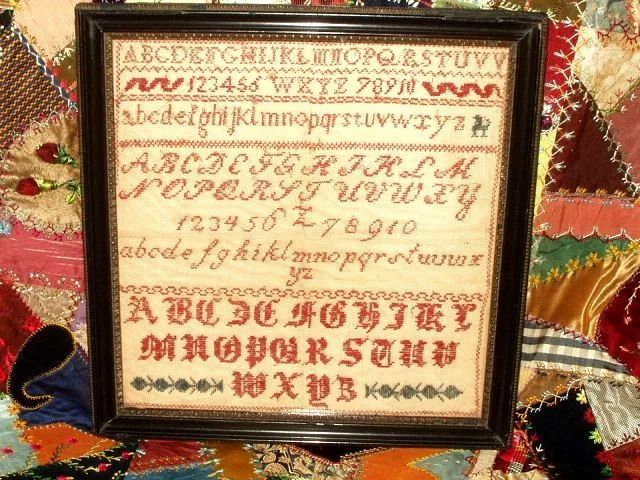 ABCDEFGHIJKLMNOPQRSTUV
123456 WXYZ 78910
abcdefghijklmnopqrstuvwxyz
ABCDEFGHIJKLM
NOPQRSTUVWXY
123456 Z 78910
abcdefghiklmnopqrstuvwx
yz
ABCDEFGHIKL
MNOPQRSTUV
WXYZ